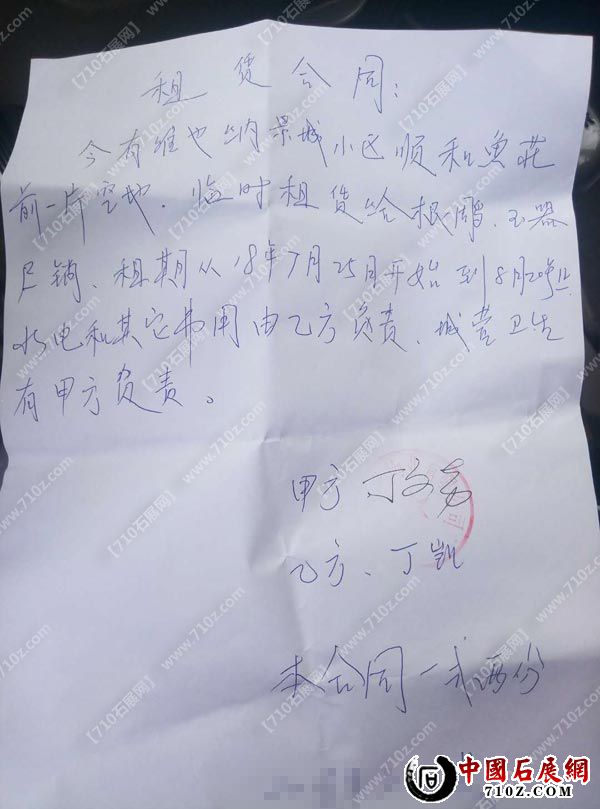 租赁合同:
今有维也纳景城小区顺和鱼庄
前一片空地.临时租赁给根雕、玉器
展销、租期从18年7月25日开始到8月20号止
水电和其它费用由乙方负责、城管卫生
有甲方负责。
甲方 丁
乙方、丁凯
本合同一式两份
中國石展網
710z.com
【710石展网】
www.710z.com